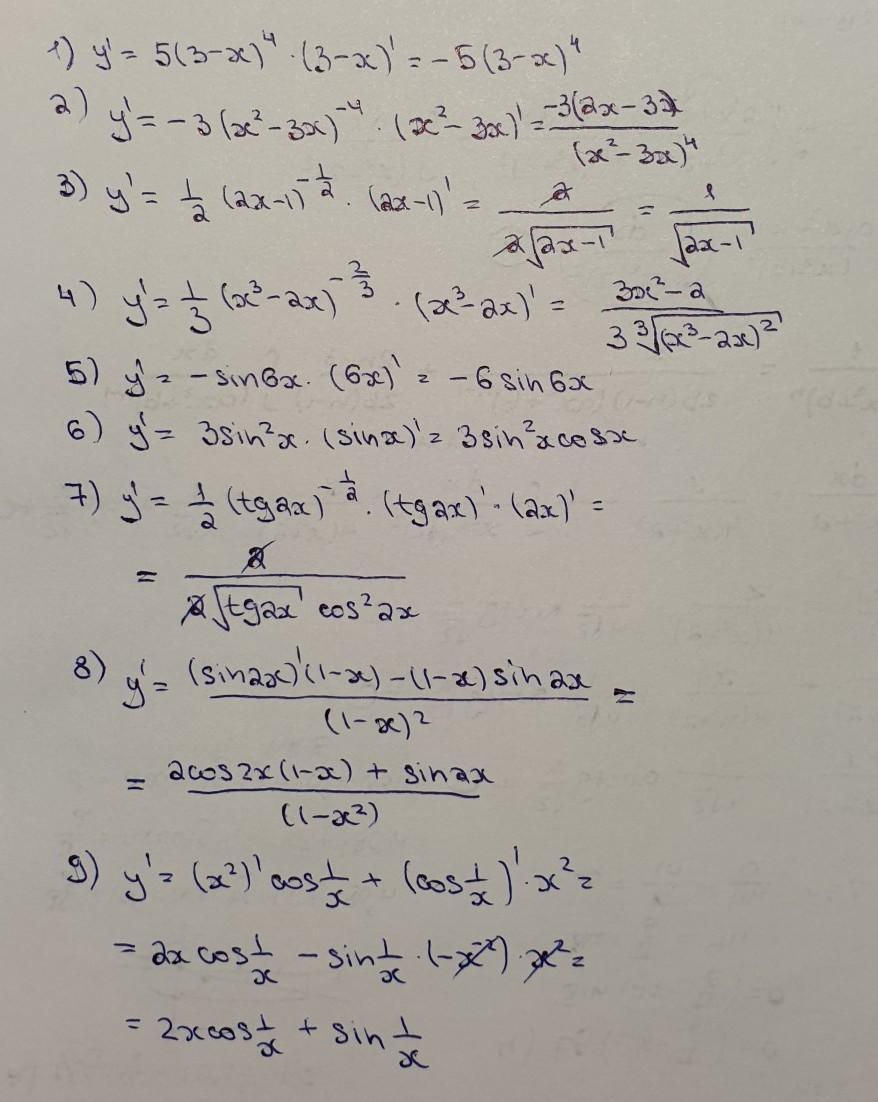 1) y' = 5(3-x)^4 · (3-x)' = -5(3-x)^4
2) y' = -3(x²-3x)^{-4} · (x²-3x)' = \frac{-3(2x-3x)}{(x²-3x)^4}
3) y' = \frac{1}{2}(2x-1)^{-\frac{1}{2}} · (2x-1)' = \frac{2}{2\sqrt{2x-1}} = \frac{1}{\sqrt{2x-1}}
4) y' = \frac{1}{3}(x³-2x)^{-\frac{2}{3}} · (x³-2x)' = \frac{3x²-2}{3\sqrt[3]{(x³-2x)²}}
5) y' = -sin6x · (6x)' = -6 sin6x
6) y' = 3sin²x · (sinx)' = 3sin²xcosx
7) y' = \frac{1}{2}(tg2x)^{-\frac{1}{2}} · (tg2x)' · (2x)' =
= \frac{2}{2\sqrt{tg2x} cos²2x}
8) y' = \frac{(sin2x)'(1-x)-(1-x)sin2x}{(1-x)²} =
= \frac{2cos2x(1-x) + sin2x}{(1-x²)}
9) y' = (x²)'cos\frac{1}{x} + (cos\frac{1}{x})' · x² =
= 2x cos\frac{1}{x} - sin\frac{1}{x} · (-x^{-2}) · x² =
= 2xcos\frac{1}{x} + sin\frac{1}{x}